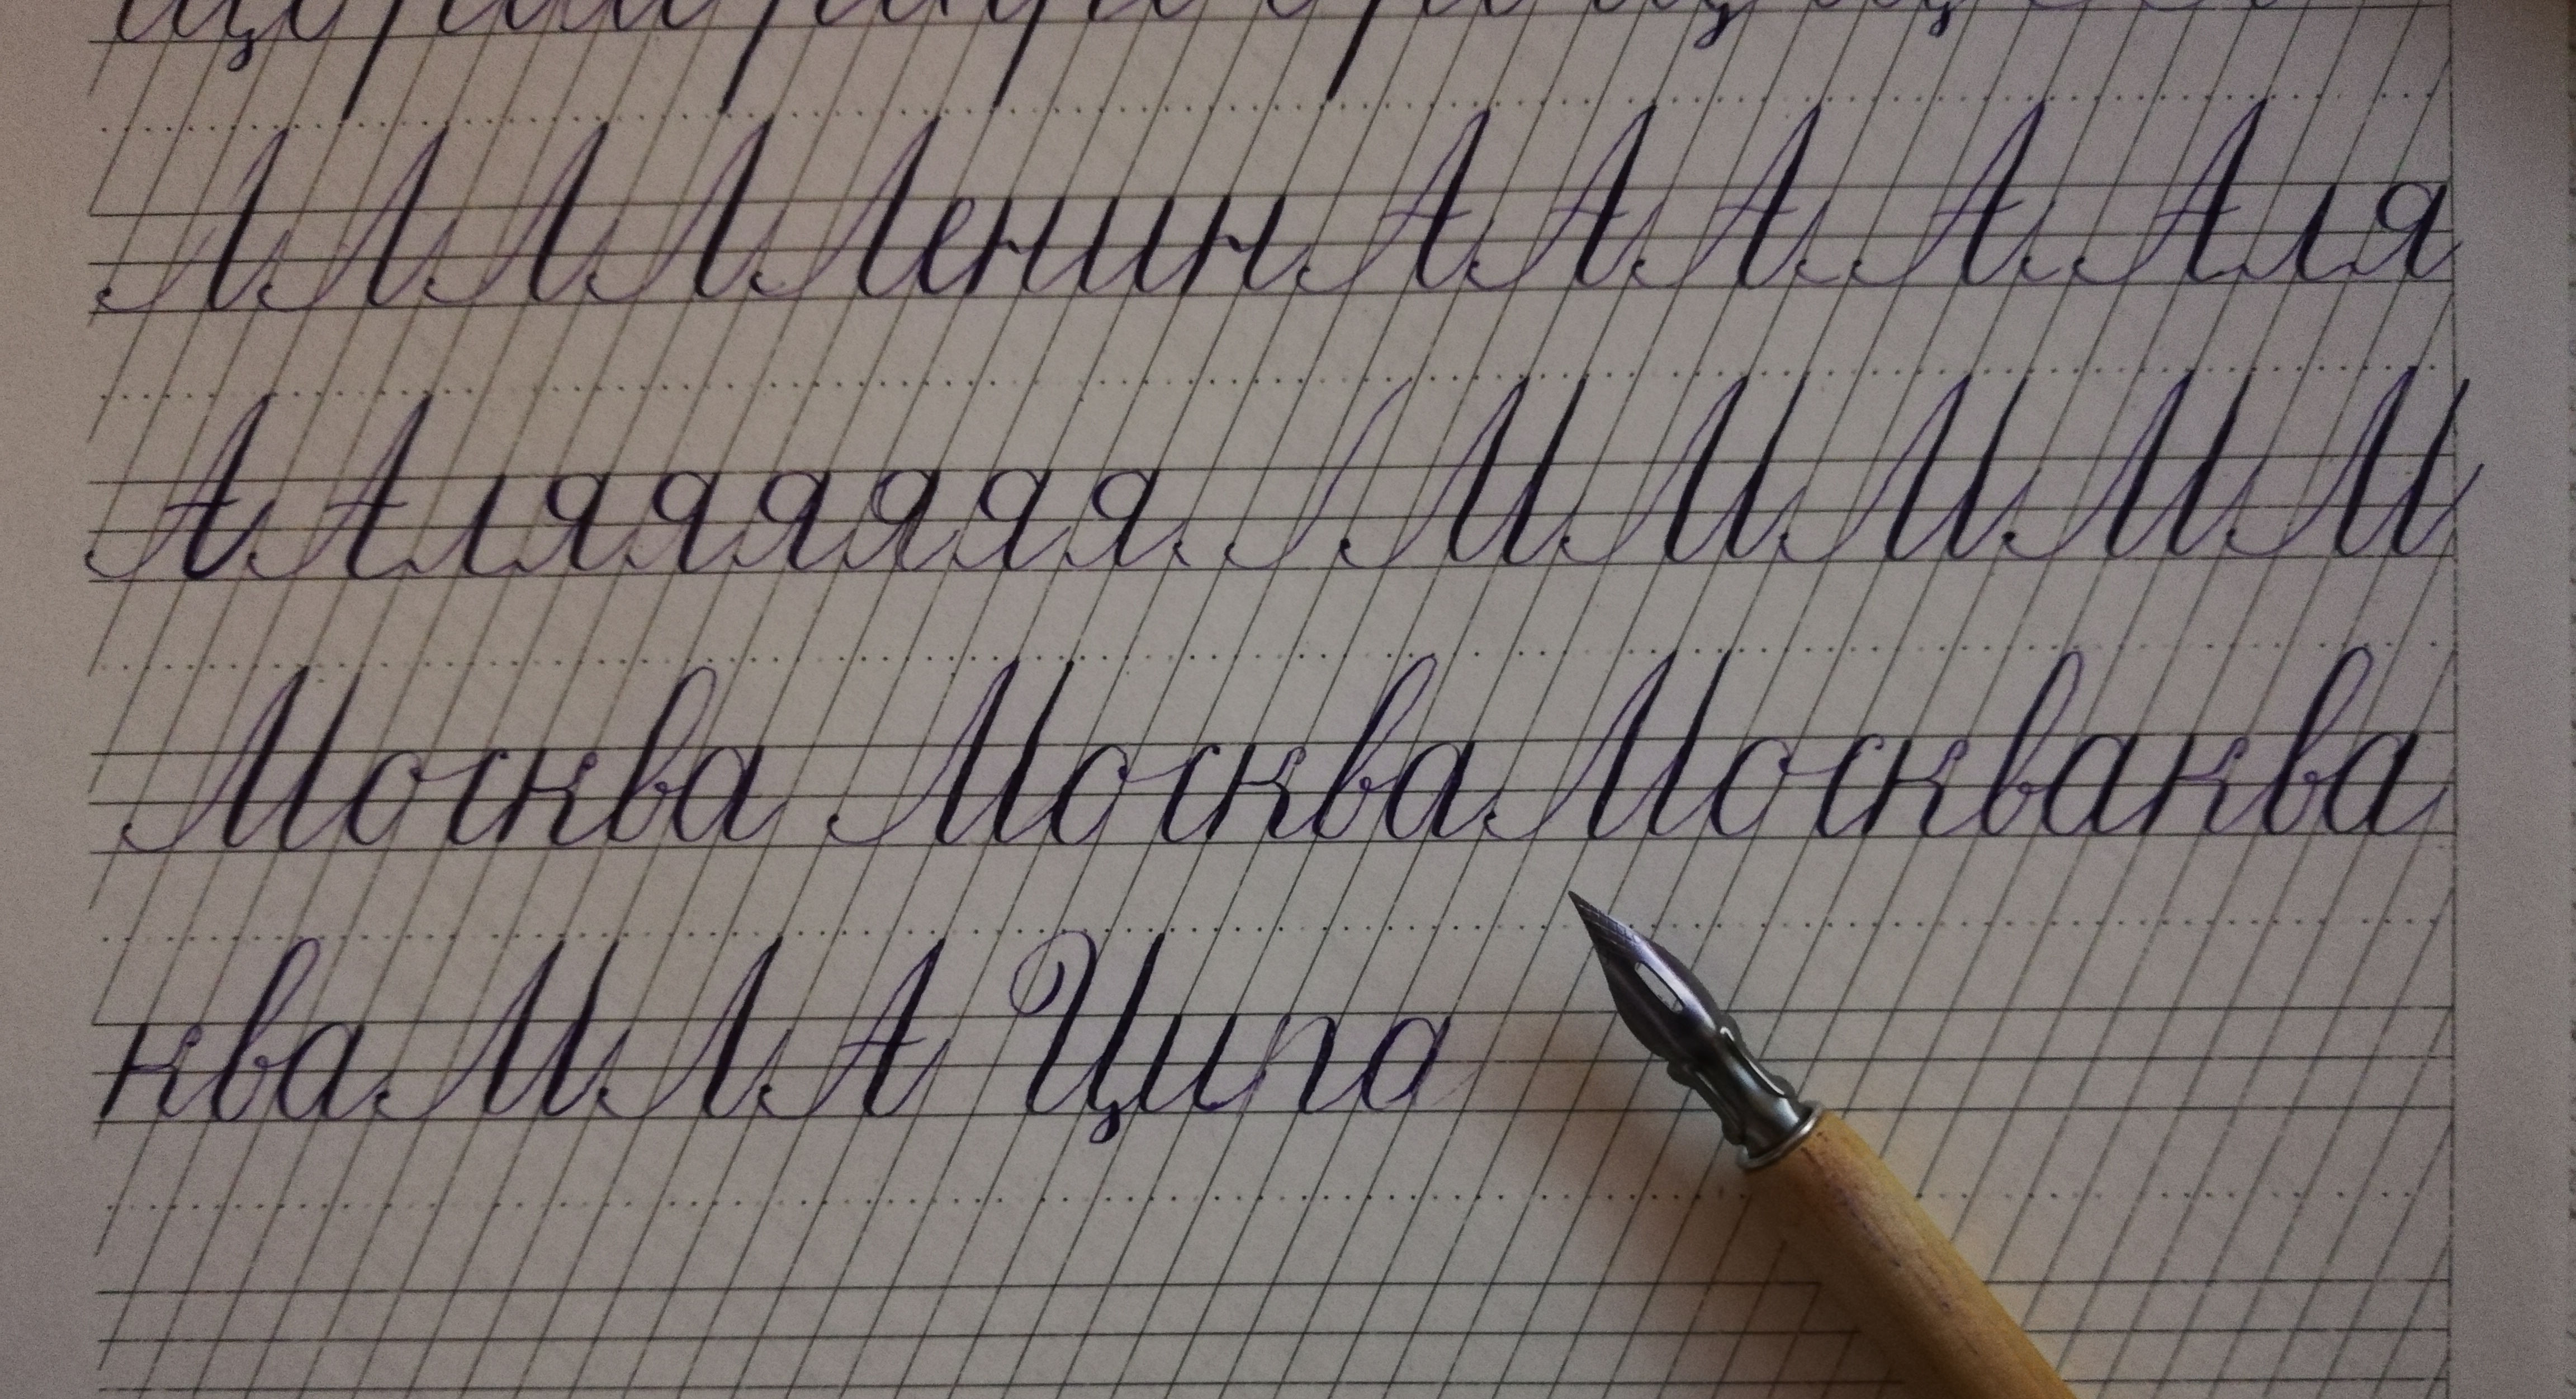 Л Л Л Л Ленин А А А А Аля
А Аля я я я я я М М М М М
Москва Москва Москва ква
ква М Л А Ципа